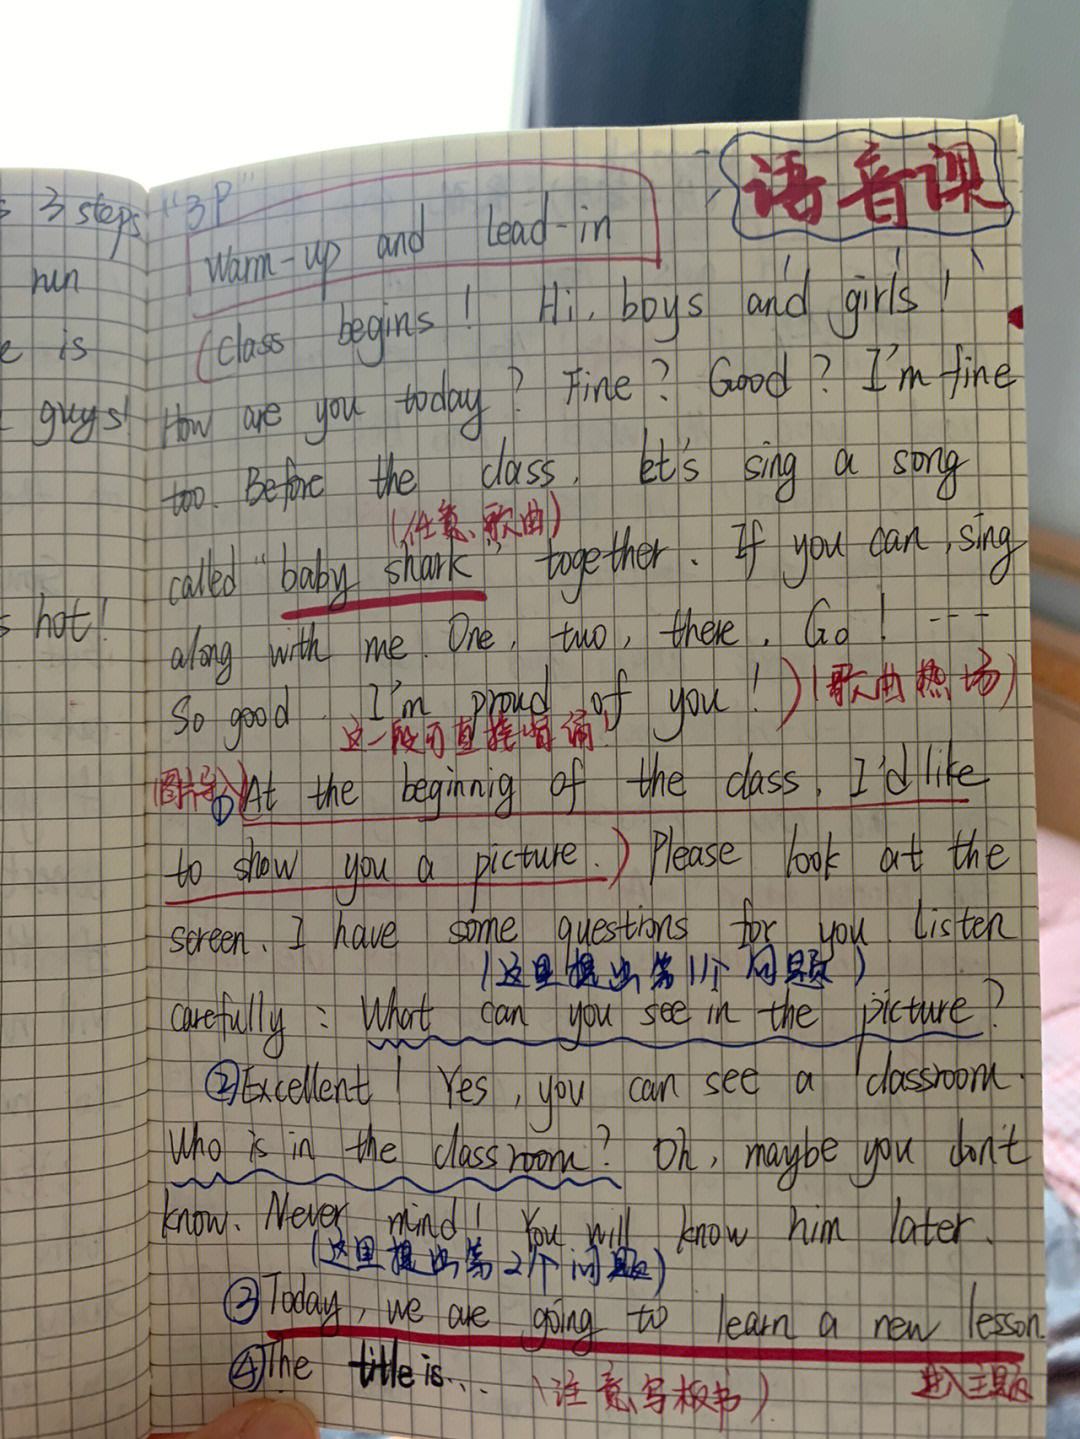 语音课
3 steps
run
is
guys!
hot!
"3P"
Warm-up and Lead-in
(Class begins! Hi, boys and girls!
How are you today? Fine? Good? I'm fine
too. Before the class, let's sing a song
(任意歌曲)
called "baby shark" together. If you can, sing
along with me. One, two, there, Go! ---
So good. I'm proud of you!) (歌曲热场)
这一段可直接背诵!
(图片导入) ①At the beginnig of the class, I'd like
to show you a picture.) Please look at the
screen. I have some questions for you. Listen
(这里提出第1个问题)
carefully: What can you see in the picture?
②Excellent! Yes, you can see a classroom.
Who is in the classroom? Oh, maybe you don't
know. Never mind! You will know him later.
(这里提出第2个问题)
③Today, we are going to learn a new lesson.
④The title is... (注意写板书) 进入主题